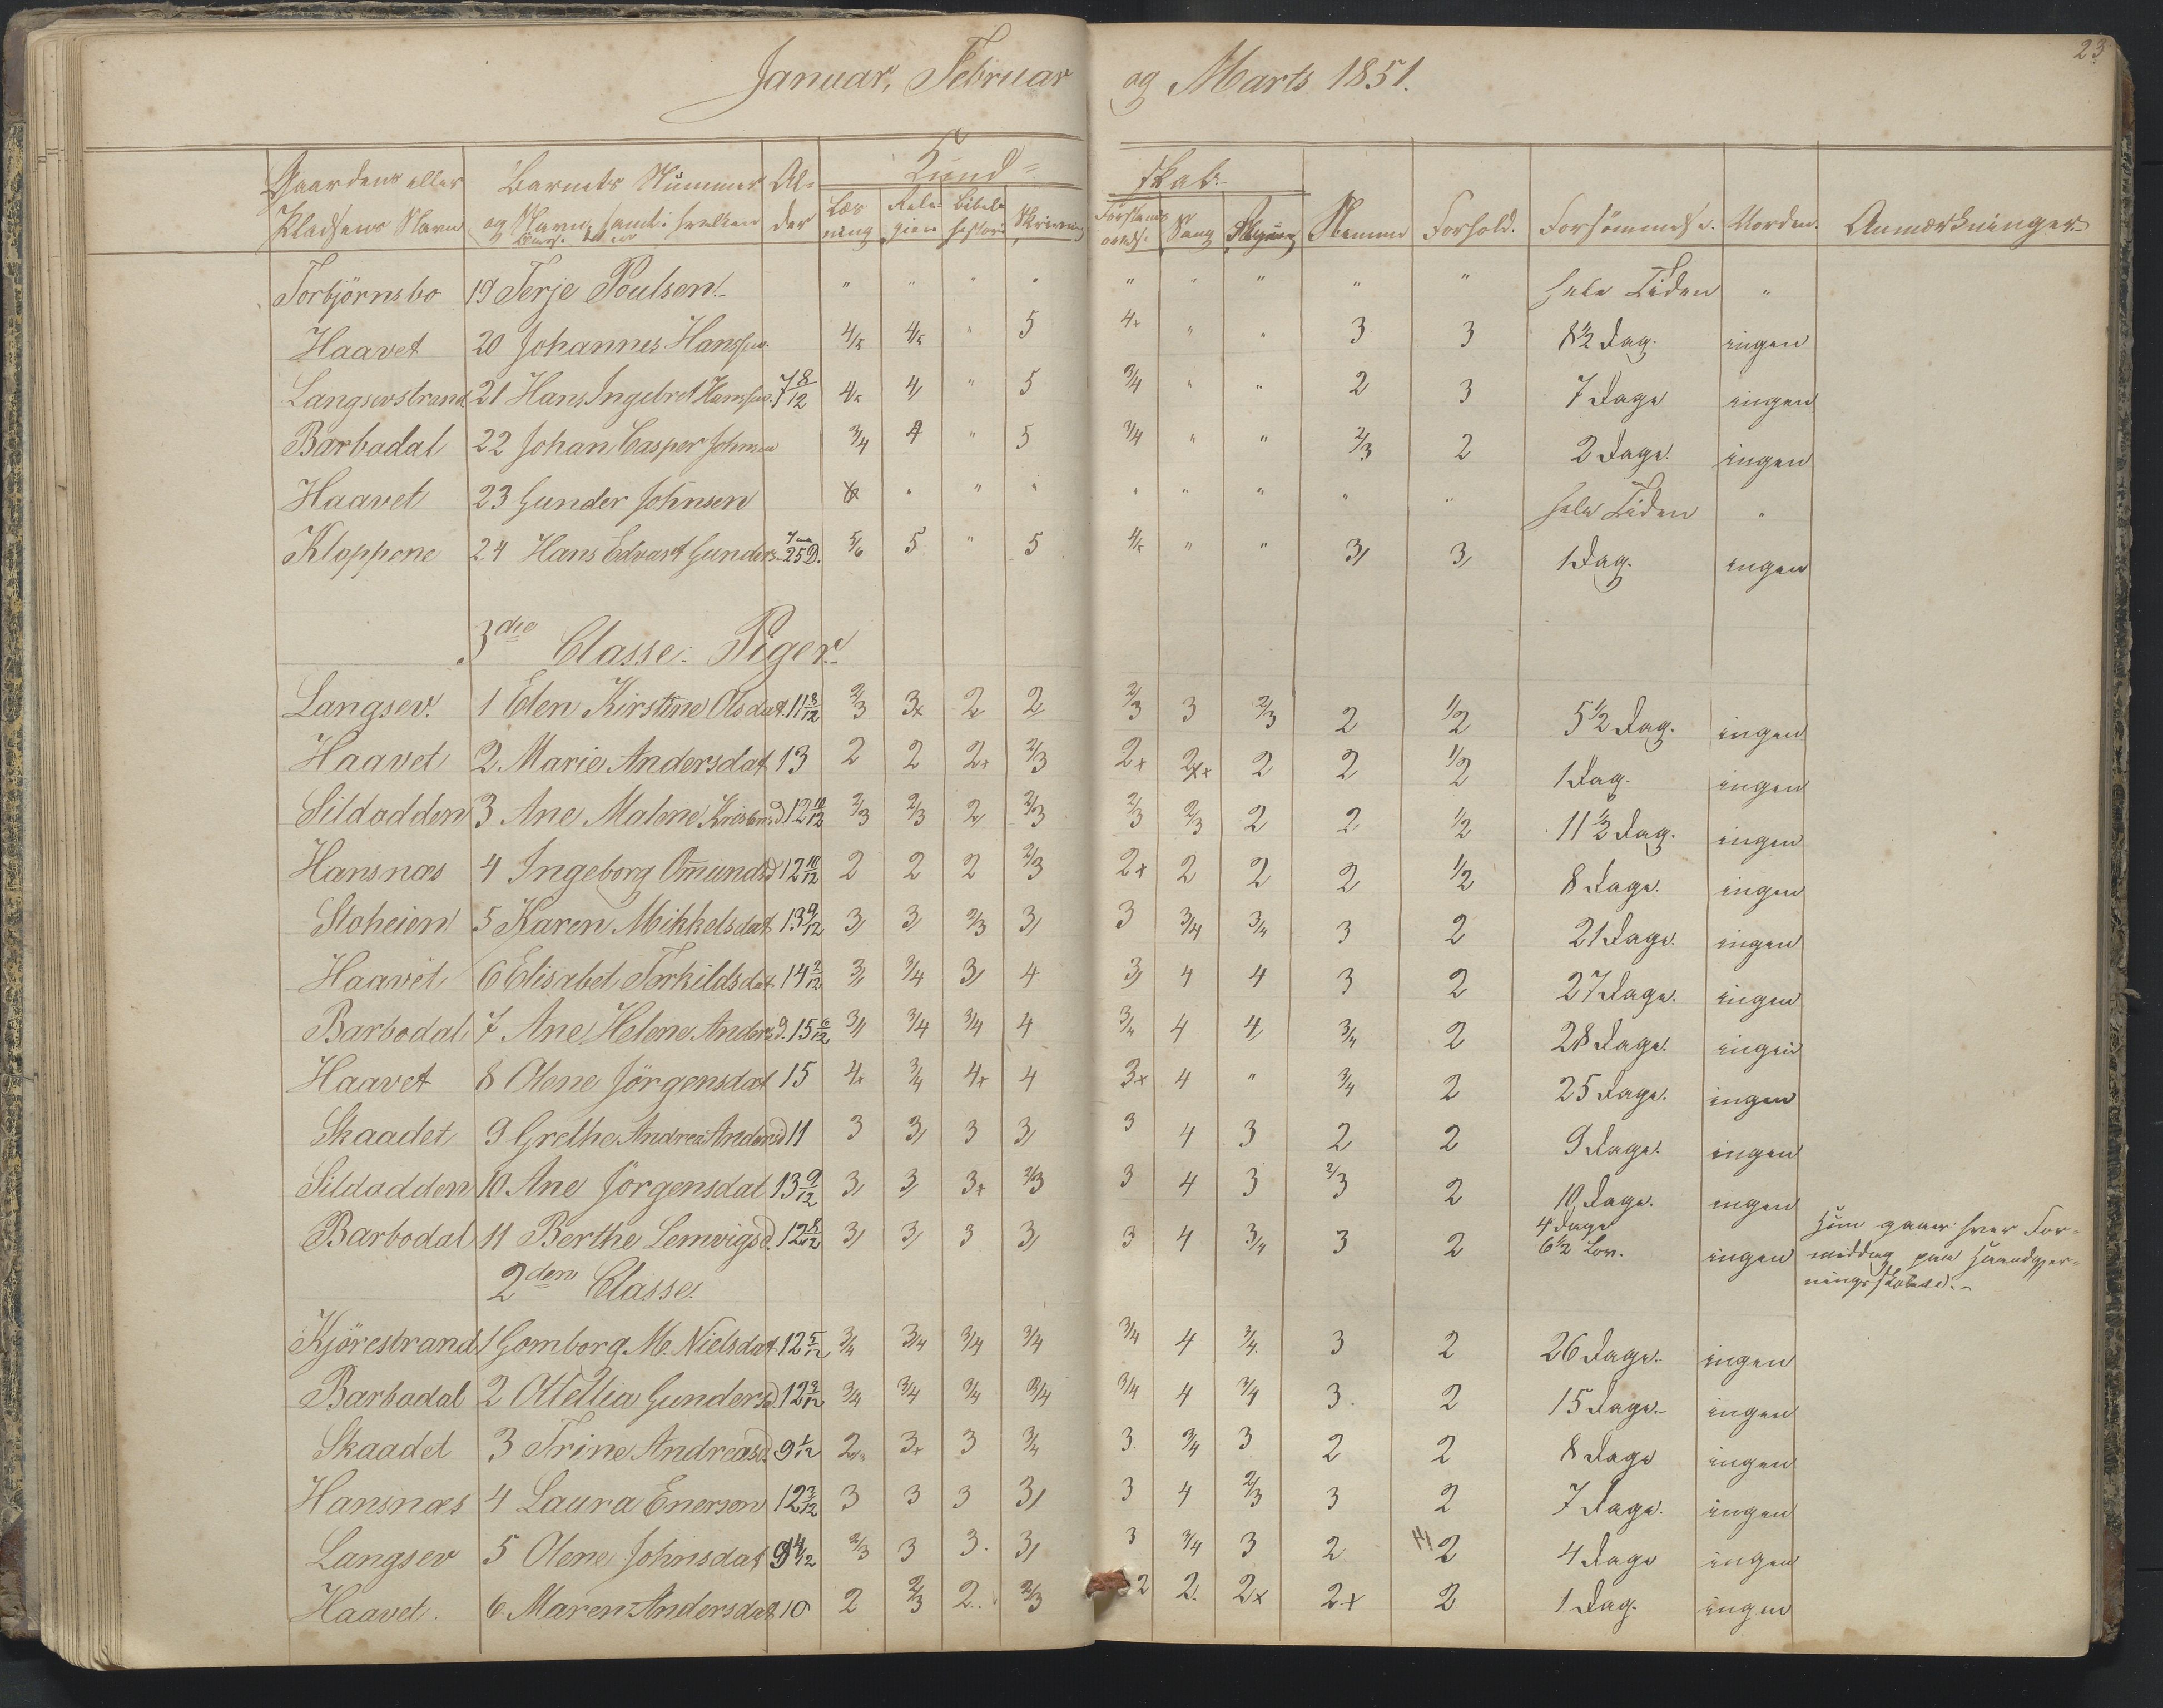 Januar, Februar og Marts 1851.
23
Gaardens eller Pladsens Navn | Barnets Nummer og Navn, samt | Alder | Kundskab: | Læsning | Religion | Bibelhistor. | Skrivning | Forstandsøvels. | Sang | Regning | Nemme | Forhold. | Forsømmels. | Anmærkninger.
Torbjörnsbo 19 Terje Poulsen " " " " " " " " " hele Tiden "
Haavet 20 Johannes Hanssen. 4/5 4/5 " 5 4x " " 3 3 8 1/2 Dag. ingen
Langsevstrand 21 Hans Ingebret Hanssen. 7 8/12 4x 4 " 5 3/4 " " 2 3 7 Dage ingen
Barbodal 22 Johan Casper Johnsen 3/4 4 " 5 3/4 " " 2/3 2 2 Dage. ingen
Haavet 23 Gunder Johnsen " " " " " " " " hele Tiden "
Kloppene 24 Hans Edvart Gunders. 25 D. 5/6 5 " 5 4/5 " " 3 3 1 Dag. ingen
3die Classe. Piger.
Langsev. 1 Elen Kirstine Olsdat. 11 8/12 2/3 3x 2 2 2/3 3 2/3 2 1/2 5 1/2 Dag. ingen
Haavet 2 Marie Andersdat 13 2 2 2x 2/3 2x 2x 2 2 1/2 1 Dag. ingen
Sildodden 3 Ane Malene d 12 10/12 2/3 2/3 2 2/3 2/3 2/3 2 2 1/2 11 1/2 Dag. ingen
Hansnæs 4 Ingeborg Omundsd 12 10/12 2 2 2 2/3 2x 2 2 2 1/2 8 Dage. ingen
Stoheien 5 Karen Mikkelsdat 13 9/12 3 3 2/3 3 3 3/4 3/4 3 2 21 Dage. ingen
Haavet 6 Elisabet Terkildsdat 14 2/12 3 3/4 3 4 3 4 4 3 2 27 Dage. ingen
Barbodal 7 Ane Helene Andersd. 15 6/12 3 3/4 3/4 4 3/4 4 4 3/4 2 28 Dage. ingen
Haavet 8 Olene Jörgensdat 15 4x 3/4 4x 4 3x 4 " 3/4 2 25 Dage. ingen
Skaadet 9 Grethe Andrea Andersd 11 3 3 3 3 3 4 3 2 2 9 Dage. ingen
Sildodden 10 Ane Jörgensdat 13 9/12 3 3 3x 2/3 3 4 3 2/3 2 10 Dage. ingen
Barbodal 11 Berthe Lemvigsd. 12 8/12 3 3 3 3 3 4 3/4 3 2 4 Dage 6 1/2 Lov. ingen Hun gaaer hver Formiddag paa Haandgjerningsskolen.
2den Classe.
Kjörestrand 1 Gomborg M. Nielsdat. 12 5/12 3/4 3/4 3/4 3/4 3/4 4 3/4. 3 2 26 Dage. ingen
Barbodal 2 Otellia Gundersd. 12 3/12 3/4 3/4 3/4 3/4 3/4 4 3/4 3. 2 15 Dage. ingen
Skaadet 3 Trine Andreasd. 9 1/12 2 3x 3 3/4 3 3/4 3 2 2 8 Dage ingen
Hansnæs 4 Laura Enersen 12 3/12 3 3 3 3 3 4 2/3 3 2 7 Dage. ingen
Langsev 5 Olene Johnsdat 9 4/12 2/3 3 3. 3 3 3/4 3 2 2 4 Dage ingen
Haavet. 6 Maren Andersdat 10 2 2/3 2. 2/3 2 2. 2x 2x 2 1 Dag. ingen